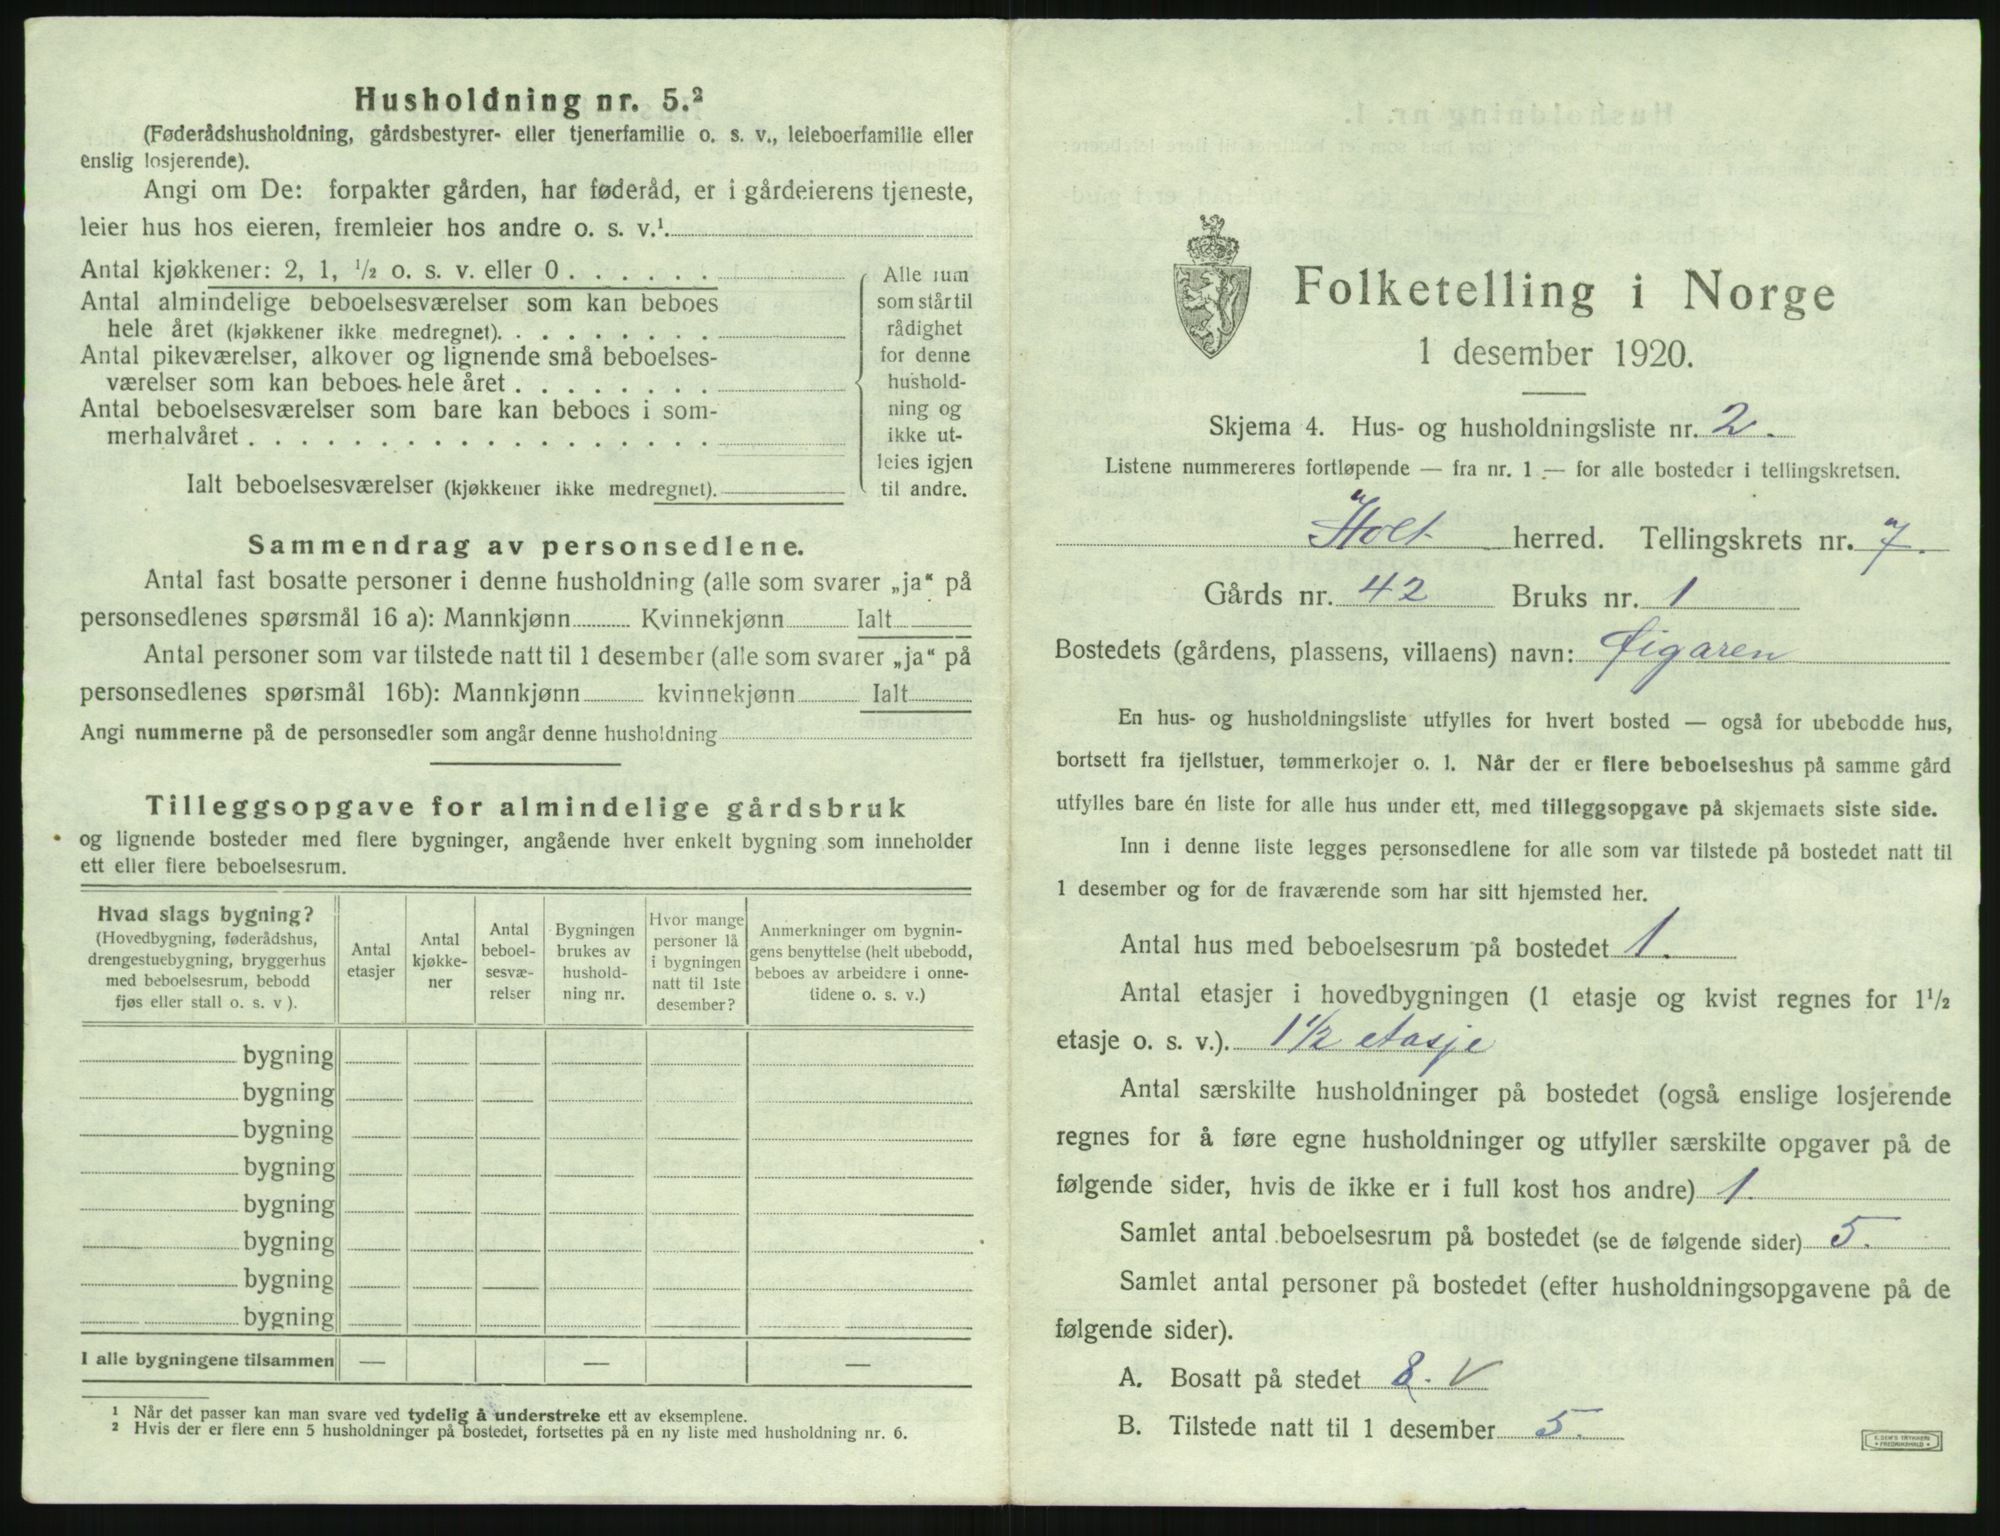 Husholdning nr. 5.²
(Føderådshusholdning, gårdsbestyrer- eller tjenerfamilie o. s. v., leieboerfamilie eller
enslig losjerende).
Angi om De: forpakter gården, har føderåd, er i gårdeierens tjeneste,
leier hus hos eieren, fremleier hos andre o. s. v.¹
Antal kjøkkener: 2, 1, ½ o. s. v. eller 0 . . . . . .
Antal almindelige beboelsesværelser som kan beboes
hele året (kjøkkener ikke medregnet). . . . . . . . .
Antal pikeværelser, alkover og lignende små beboelses-
værelser som kan beboes hele året . . . . . . . .
Antal beboelsesværelser som bare kan beboes i som-
merhalvåret . . . . . . . . . . . . . . . . . .
Ialt beboelsesværelser (kjøkkener ikke medregnet).
Alle rum
som står til
rådighet
for denne
hushold-
ning og
ikke ut-
leies igjen
til andre.
Sammendrag av personsedlene.
Antal fast bosatte personer i denne husholdning (alle som svarer „ja“ på
personsedlenes spørsmål 16 a): Mannkjønn Kvinnekjønn Ialt
Antal personer som var tilstede natt til 1 desember (alle som svarer „ja“ på
personsedlenes spørsmål 16b): Mannkjønn kvinnekjønn Ialt
Angi nummerne på de personsedler som angår denne husholdning
Tilleggsopgave for almindelige gårdsbruk
og lignende bosteder med flere bygninger, angående hver enkelt bygning som inneholder
ett eller flere beboelsesrum.
Hvad slags bygning?
(Hovedbygning, føderådshus,
drengestuebygning, bryggerhus
med beboelsesrum, bebodd
fjøs eller stall o. s. v ).
Antal
etasjer
Antal
kjøkke-
ner
Antal
beboel-
sesvæ-
relser
Bygningen
brukes av
hushold-
ning nr.
Hvor mange
personer lå
i bygningen
natt til 1ste
desember?
Anmerkninger om bygnin-
gens benyttelse (helt ubebodd,
beboes av arbeidere i onne-
tidene o. s. v.)
bygning
bygning
bygning
bygning
bygning
bygning
bygning
bygning
I alle bygningene tilsammen — — —
¹ Når det passer kan man svare ved tydelig å understreke ett av eksemplene.
² Hvis der er flere enn 5 husholdninger på bostedet, fortsettes på en ny liste med husholdning nr. 6.
Folketelling i Norge
1 desember 1920.
Skjema 4. Hus- og husholdningsliste nr. 2.
Listene nummereres fortløpende — fra nr. 1 — for alle bosteder i tellingskretsen.
Holt herred. Tellingskrets nr. 7.
Gårds nr. 42 Bruks nr. 1
Bostedets (gårdens, plassens, villaens) navn: Øigaren
En hus- og husholdningsliste utfylles for hvert bosted — også for ubebodde hus,
bortsett fra fjellstuer, tømmerkojer o. l. Når der er flere beboelseshus på samme gård
utfylles bare én liste for alle hus under ett, med tilleggsopgave på skjemaets siste side.
Inn i denne liste legges personsedlene for alle som var tilstede på bostedet natt til
1 desember og for de fraværende som har sitt hjemsted her.
Antal hus med beboelsesrum på bostedet 1.
Antal etasjer i hovedbygningen (1 etasje og kvist regnes for 1½
etasje o. s. v.). 1½ etasje
Antal særskilte husholdninger på bostedet (også enslige losjerende
regnes for å føre egne husholdninger og utfyller særskilte opgaver på de
følgende sider, hvis de ikke er i full kost hos andre) 1.
Samlet antal beboelsesrum på bostedet (se de følgende sider) 5.
Samlet antal personer på bostedet (efter husholdningsopgavene på de
følgende sider).
A. Bosatt på stedet 8. V
B. Tilstede natt til 1 desember 5.